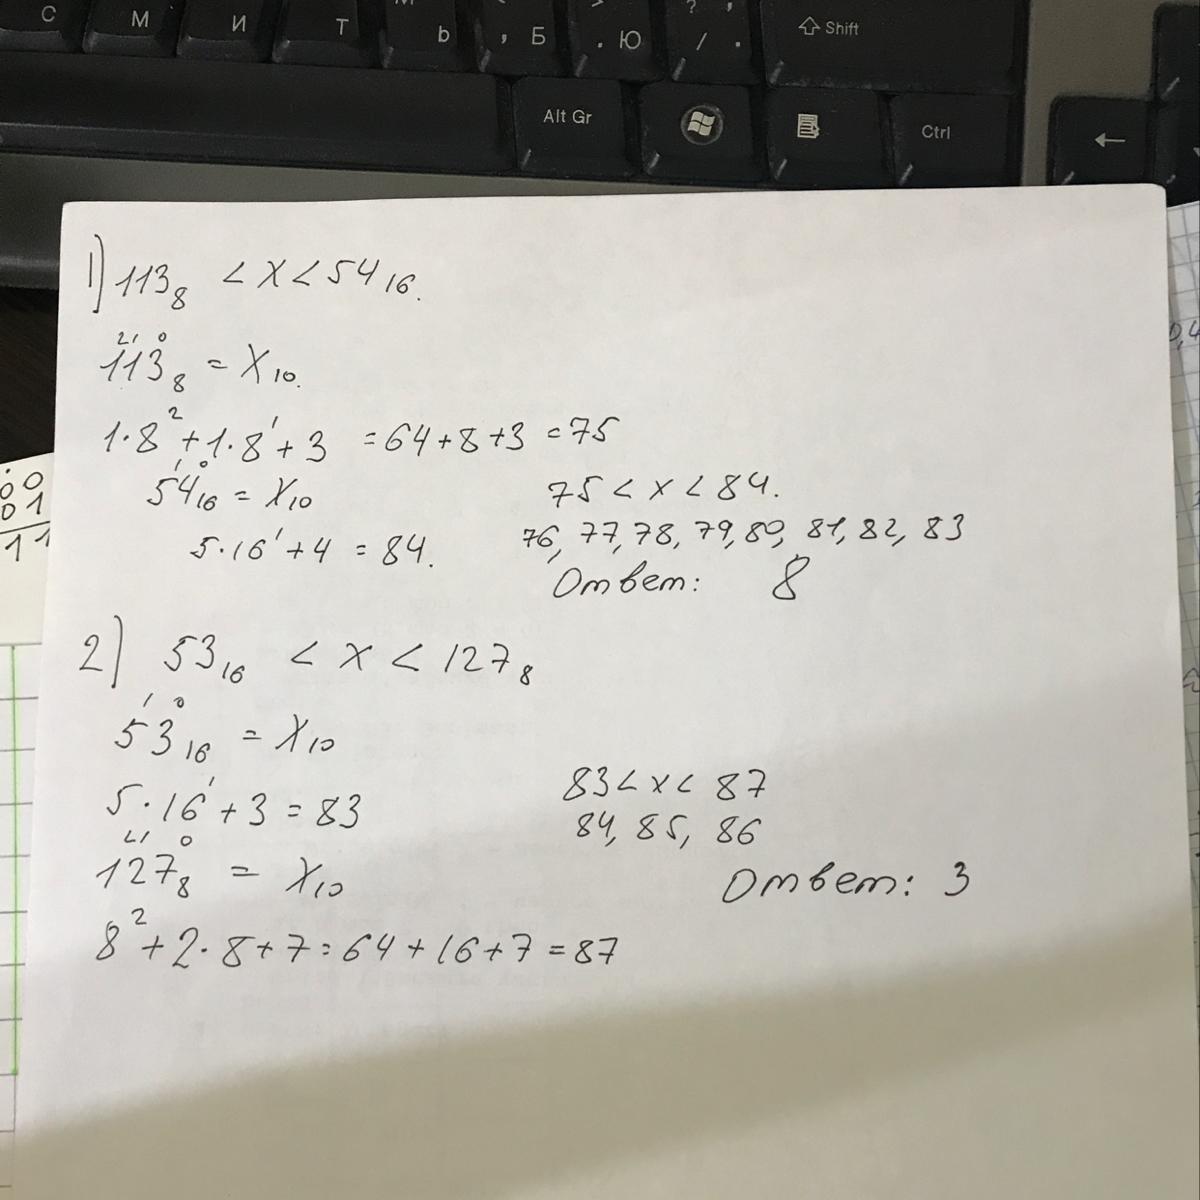 С М И Т Ь , Б . Ю ? , / .
Shift
Alt Gr
Ctrl
1) 113₈ < x < 54₁₆.
2 1 0
113₈ = X₁₀.
1·8² + 1·8¹ + 3 = 64 + 8 + 3 = 75
1 0
54₁₆ = X₁₀
5·16¹ + 4 = 84.
75 < x < 84.
76, 77, 78, 79, 80, 81, 82, 83
Ответ: 8
2) 53₁₆ < x < 127₈
1 0
53₁₆ = X₁₀
5·16¹ + 3 = 83
2 1 0
127₈ = X₁₀
8² + 2·8 + 7 = 64 + 16 + 7 = 87
83 < x < 87
84, 85, 86
Ответ: 3